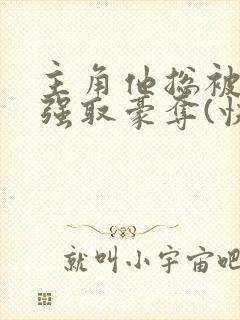 主角他总被
强取豪夺(快
就叫小宇宙吧